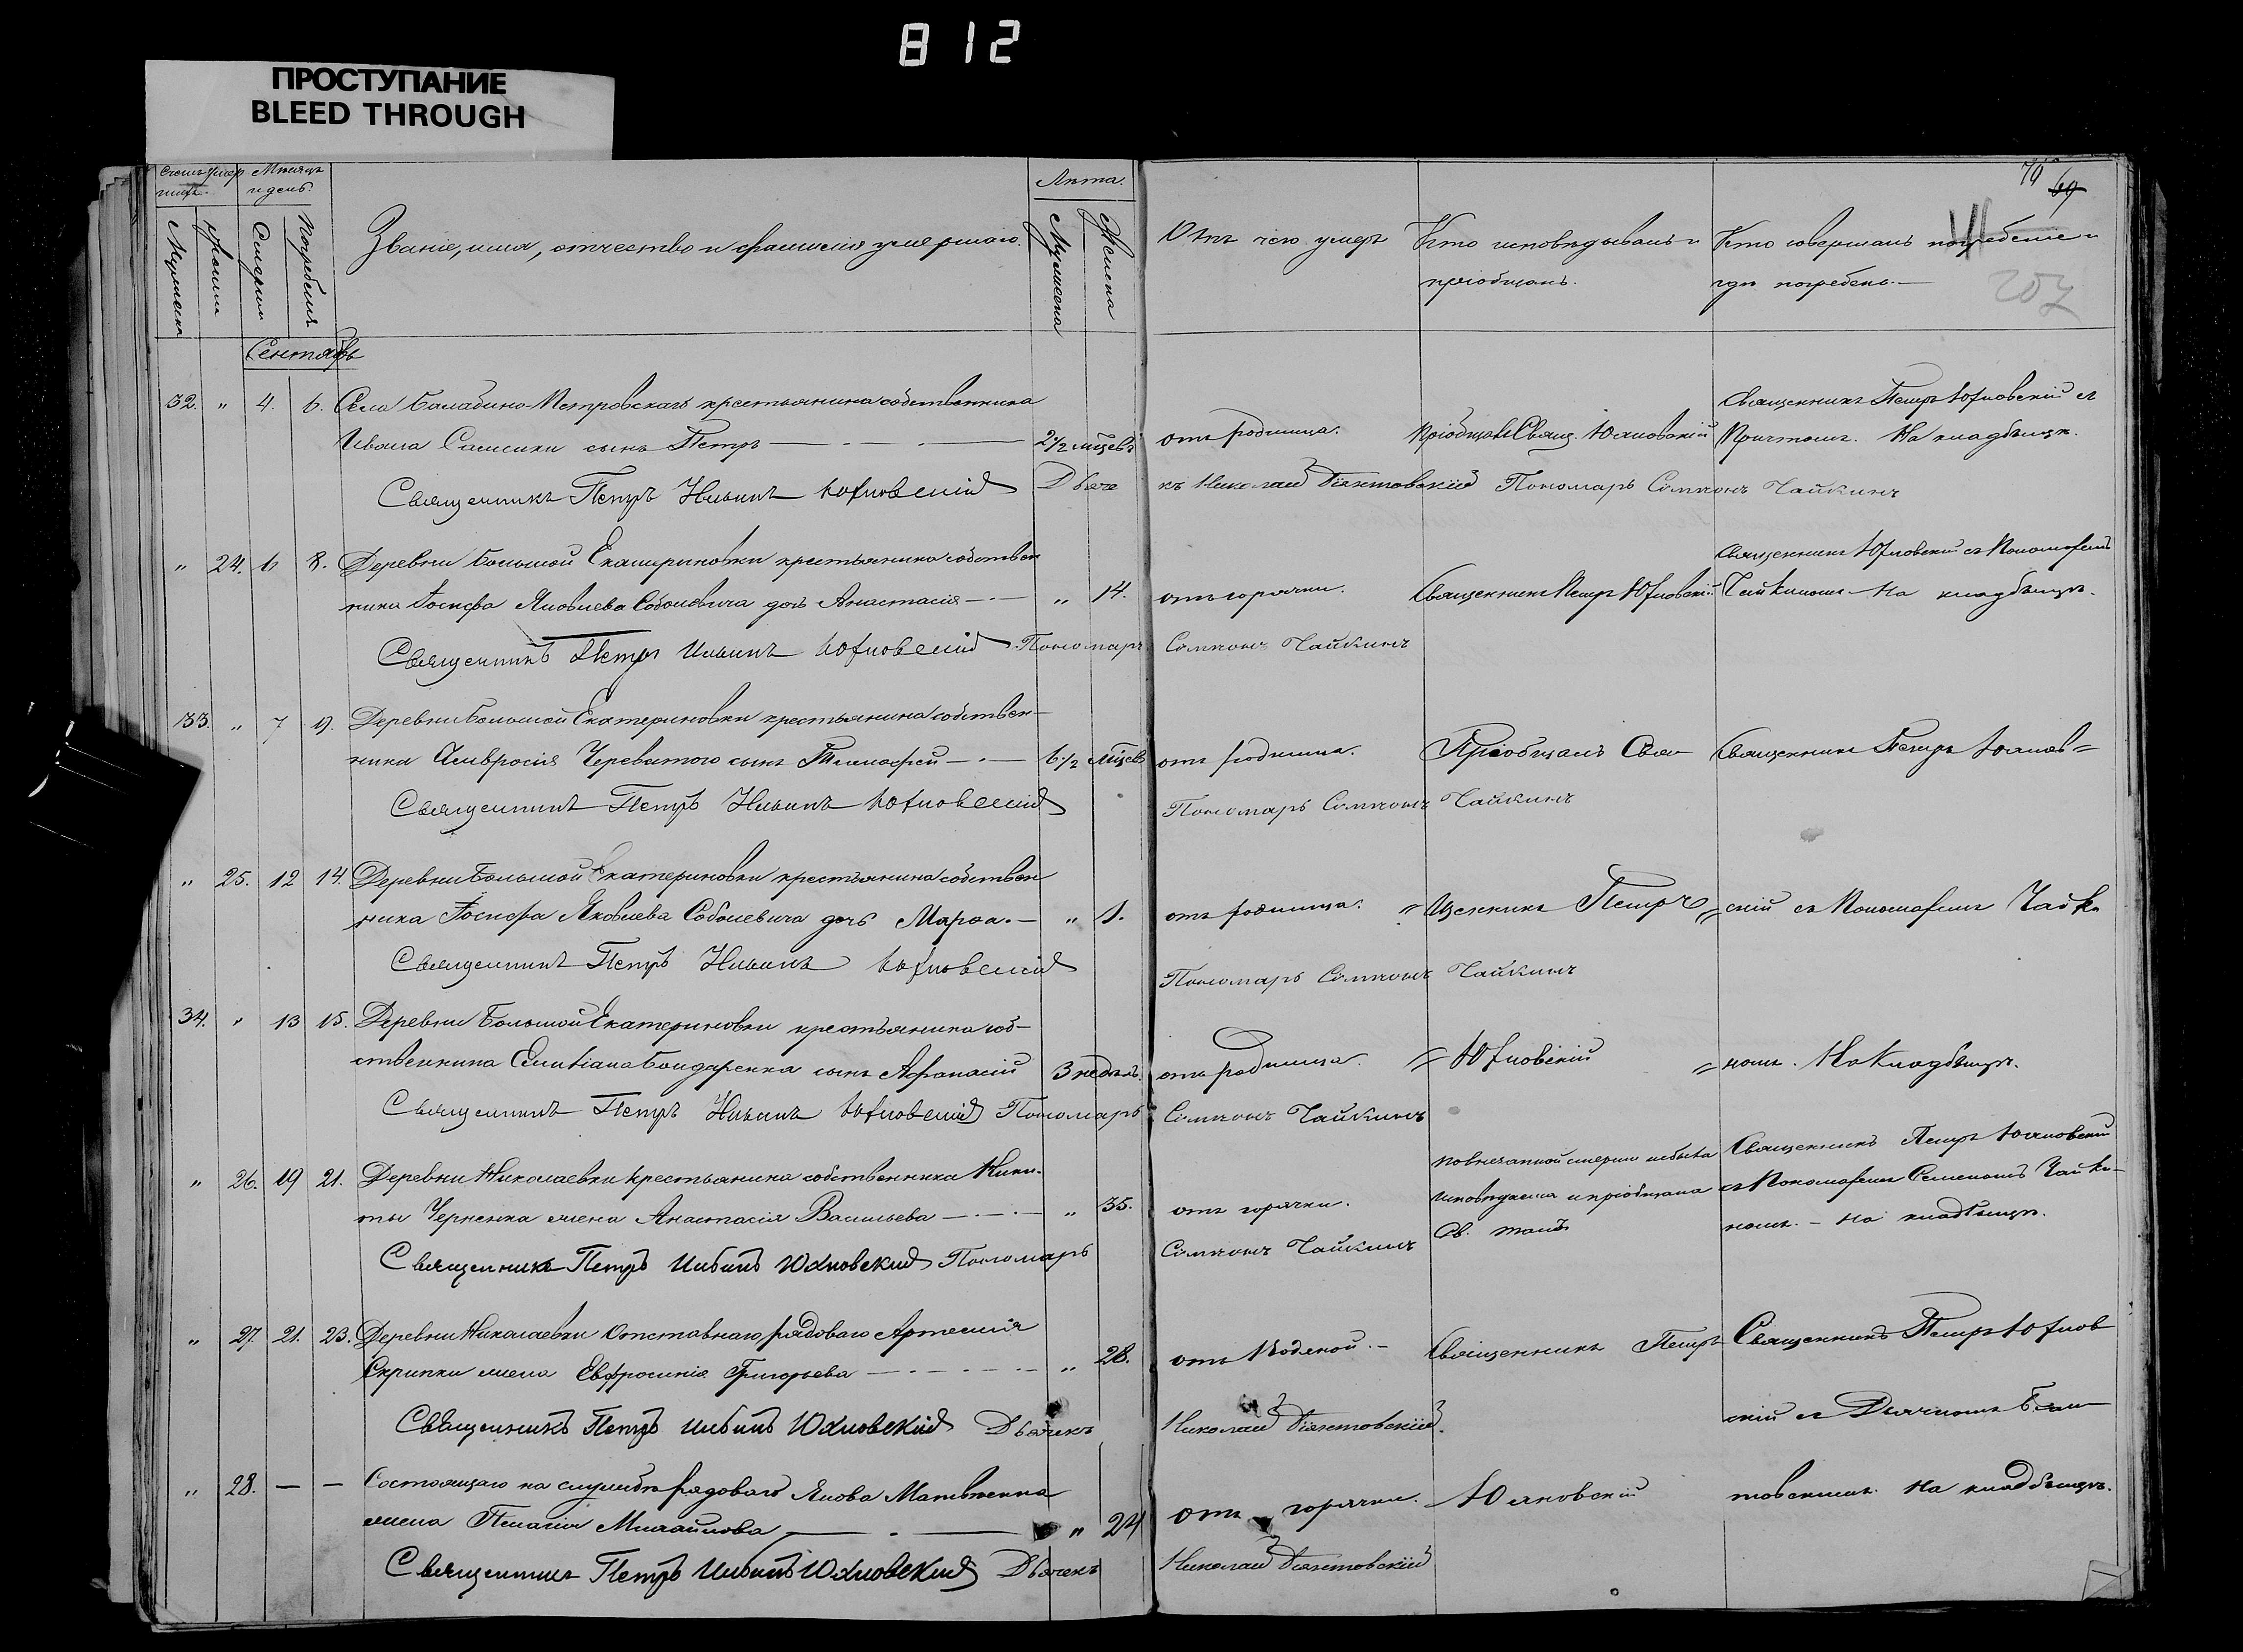 812
ПРОСТУПАНИЕ
BLEED THROUGH
Счетъ умер
шихъ.
Мѣсяцъ
и день.
Мужеска
Женска
Смерти
Погребенія
Званіе, имя, отчество и фамилія умершаго.
Лѣта.
Мужеска
Женска
Отъ чего умеръ
Кто исповѣдывалъ и
пріобщалъ.
Кто совершалъ погребеніе и
гдѣ погребенъ.
70 69
207
Сентябрь
32. " 4. 6. Села Балабино-Петровскаго крестьянина собственника
Ивана сынъ Петръ 2 1/2 мѣсцевъ
отъ родимца.
Пріобщалъ Свящ. Юхновскій
Священникъ Петръ Юхновскій съ
Причтомъ. На кладбищѣ.
Священникъ Петръ Ильинъ Юхновскій Дьяче
къ Николай Пономарь Чайкинъ
" 24. 6 8. Деревни Большой Екатериновки крестьянина собствен
ника Іосифа Яковлева Соболевича дочь Анастасія " 14.
отъ горячки.
Священникъ Петръ Юхновскій
Священникъ Юхновскій съ Пономаремъ
Чайкиномъ На кладбищѣ.
Священникъ Петръ Ильинъ Юхновскій Пономарь
Чайкинъ
33. " 7 9. Деревни Большой Екатериновки крестьянина собствен-
ника Амвросія Череватого сынъ Тимофей 6 1/2 мѣсцевъ
отъ родимца.
Пріобщалъ Свя-
Священникъ Петръ Юхнов=
Священникъ Петръ Ильинъ Юхновскій
Пономарь Чайкинъ
" 25. 12 14. Деревни Большой Екатериновки крестьянина собствен
ника Іосифа Яковлева Соболевича дочь Марѳа. " 1.
отъ родимца.
=щенникъ Петръ
=скій съ Пономаремъ Чайки
Священникъ Петръ Ильинъ Юхновскій
Пономарь Чайкинъ
34. " 13 15. Деревни Большой Екатериновки крестьянина соб-
ственника Бондаренка сынъ Афанасій 3 недѣль.
отъ родимца.
=Юхновскій
=номъ. На Кладбищѣ.
Священникъ Петръ Ильинъ Юхновскій Пономарь
Чайкинъ
" 26. 19 21. Деревни Николаевки крестьянина собственника Ники-
ты Черненка жена Анастасія Васильева " 35.
отъ горячки.
по внезапной смерти небыла
исповѣдана и пріобщена
Св. таинъ
Священникъ Петръ Юхновскій
съ Пономаремъ Чайки-
номъ. - На кладбищѣ.
Священникъ Петръ Ильинъ Юхновскій Пономарь
Чайкинъ
" 27. 21. 23. Деревни Николаевки Отставнаго рядоваго Артемія
Скрипки жена Евфросинія Григорьева " 28.
отъ водяной.
Священникъ Петръ
Священникъ Петръ Юхнов
Священникъ Петръ Ильинъ Юхновскій Дьячекъ
Николай
скій съ Дьячкомъ
" 28. — — Состоящаго на службѣ рядоваго Якова Матвѣенка
жена Пелагія Михайлова " 24
отъ горячки.
Юхновскій
товскимъ. На кладбищѣ.
Священникъ Петръ Ильинъ Юхновскій Дьячекъ
Николай